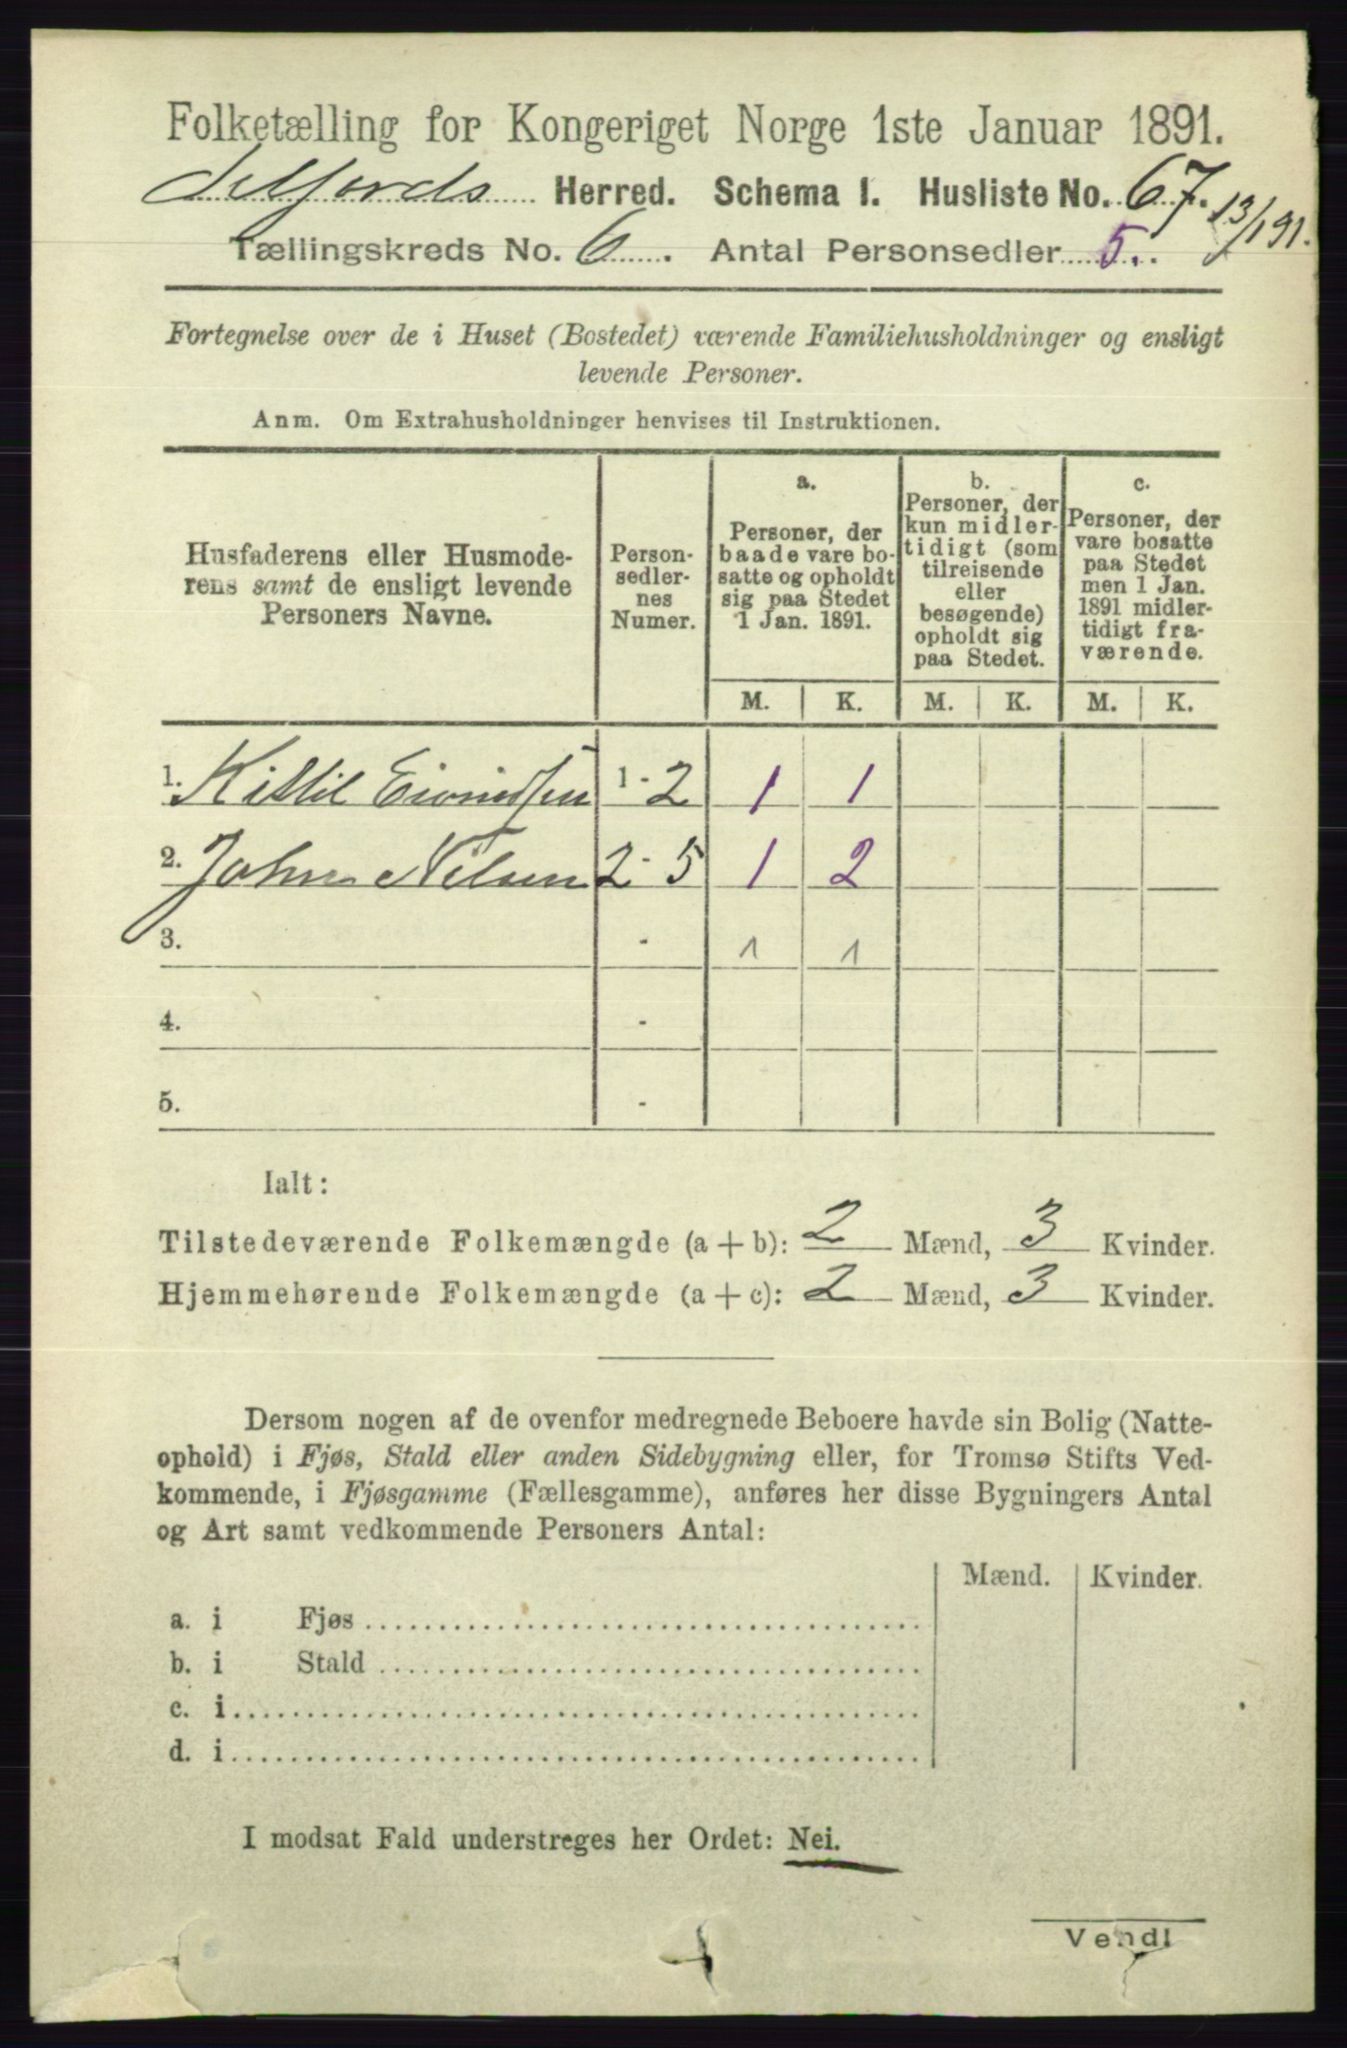 Folketælling for Kongeriget Norge 1ste Januar 1891.
Herred. Schema I. Husliste No. 67.
13/1 91.
Tællingskreds No. 6. Antal Personsedler 5.
Fortegnelse over de i Huset (Bostedet) værende Familiehusholdninger og ensligt
levende Personer.
Anm. Om Extrahusholdninger henvises til Instruktionen.
Husfaderens eller Husmode-
rens samt de ensligt levende
Personers Navne.
Person-
sedler-
nes
Numer.
a.
Personer, der
baade vare bo-
satte og opholdt
sig paa Stedet
1 Jan. 1891.
b.
Personer, der
kun midler-
tidigt (som
tilreisende
eller
besøgende)
opholdt sig
paa Stedet.
c.
Personer, der
vare bosatte
paa Stedet
men 1 Jan.
1891 midler-
tidigt fra-
værende.
M. K. M. K. M. K.
1. Kittil Eivindsen 1 - 2 1 1
2. John Nilsen 2 - 5 1 2
3. - 1 1
4. -
5. -
Ialt:
Tilstedeværende Folkemængde (a + b): 2 Mænd, 3 Kvinder.
Hjemmehørende Folkemængde (a + c): 2 Mænd, 3 Kvinder.
Dersom nogen af de ovenfor medregnede Beboere havde sin Bolig (Natte-
ophold) i Fjøs, Stald eller anden Sidebygning eller, for Tromsø Stifts Ved-
kommende, i Fjøsgamme (Fællesgamme), anføres her disse Bygningers Antal
og Art samt vedkommende Personers Antal:
Mænd. Kvinder.
a. i Fjøs
b. i Stald
c. i
d. i
I modsat Fald understreges her Ordet: Nei.
Vend!